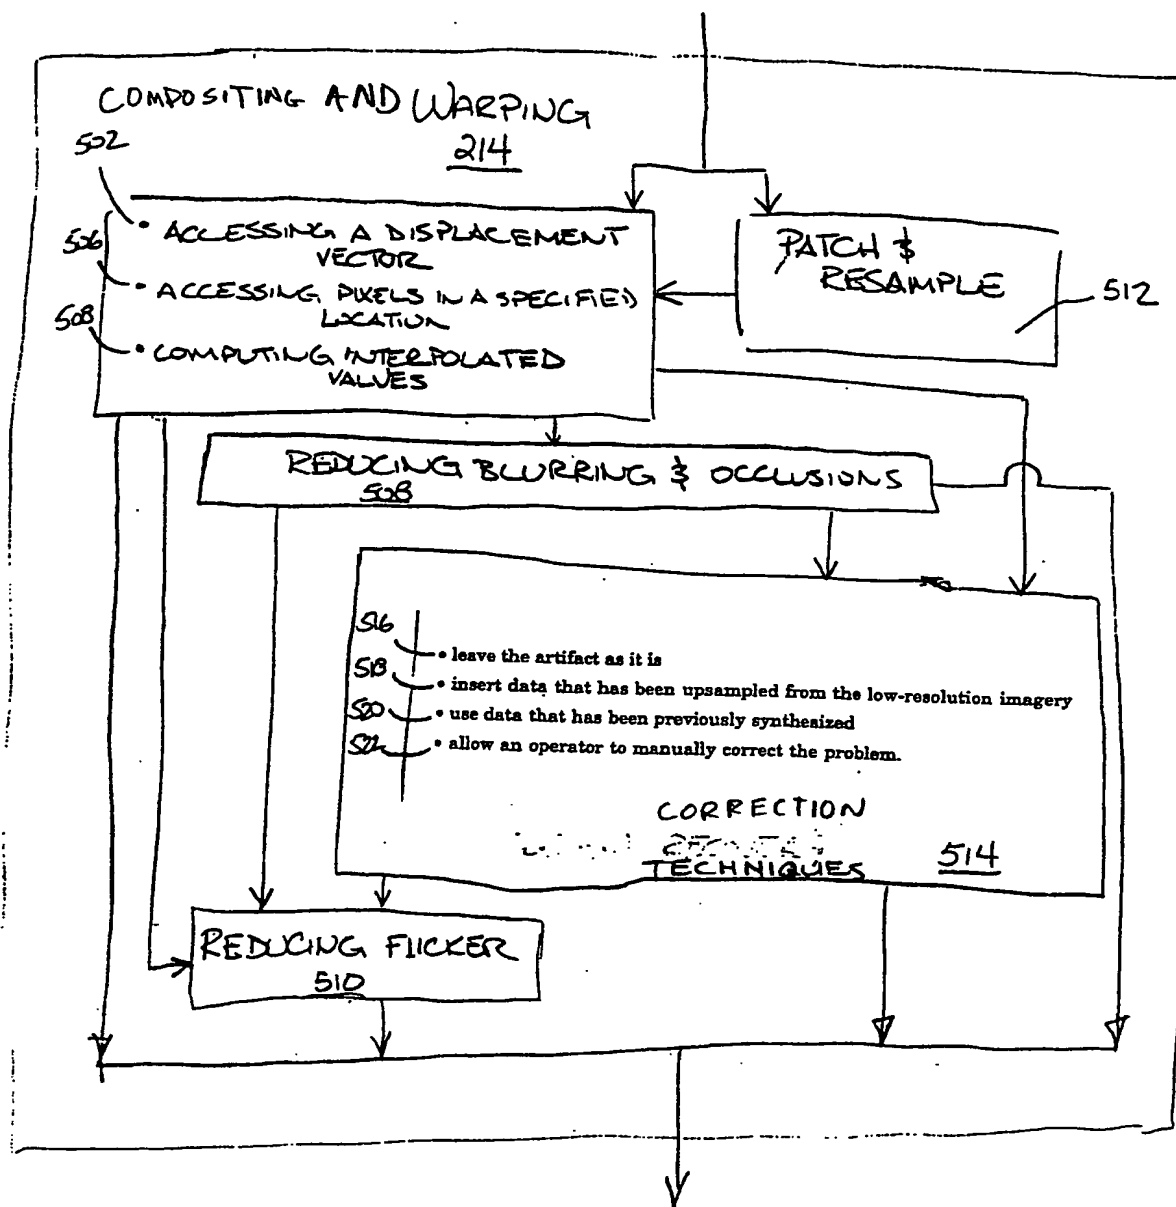 COMPOSITING AND WARPING
214
502
• ACCESSING A DISPLACEMENT
VECTOR
506
• ACCESSING PIXELS IN A SPECIFIED
LOCATION
508
• COMPUTING INTERPOLATED
VALUES
PATCH &
RESAMPLE
512
REDUCING BLURRING & OCCLUSIONS
508
516
• leave the artifact as it is
518
• insert data that has been upsampled from the low-resolution imagery
520
• use data that has been previously synthesized
522
• allow an operator to manually correct the problem.
CORRECTION
TECHNIQUES
514
REDUCING FLICKER
510